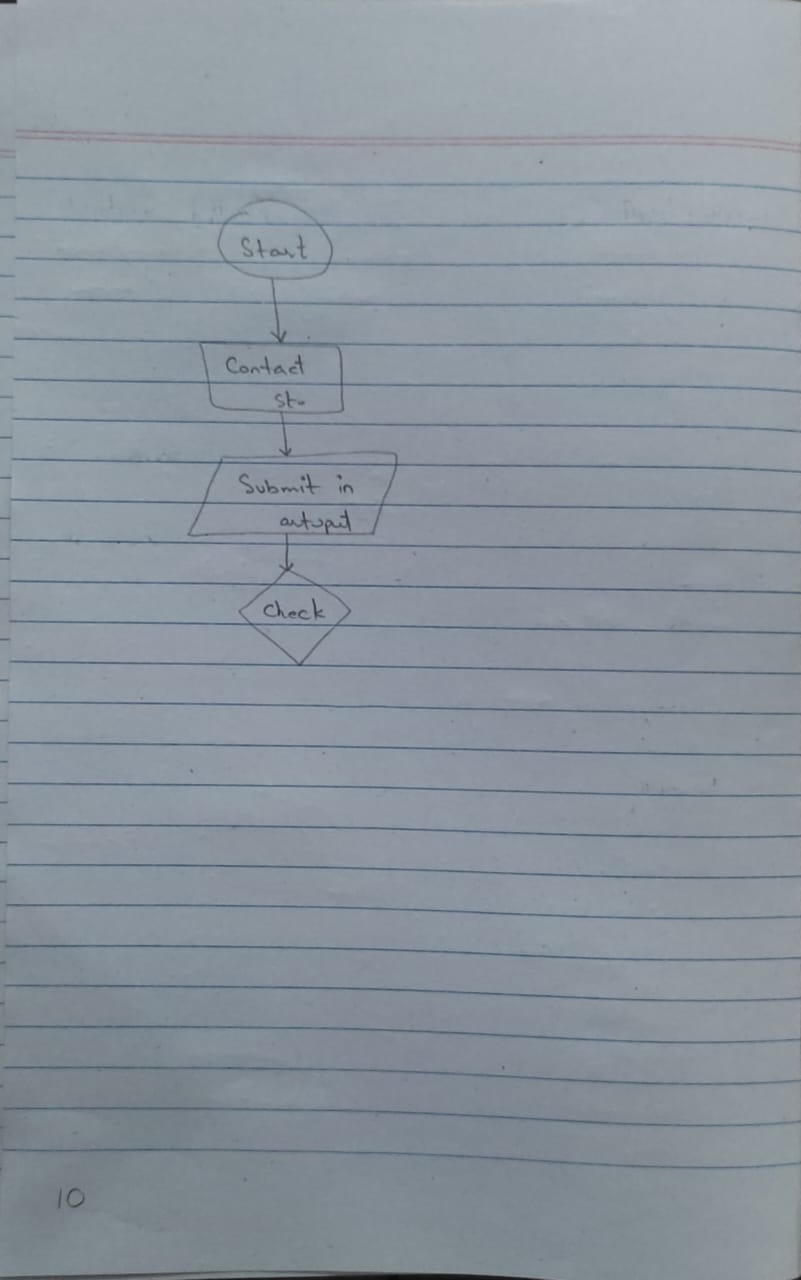 Start
Contact
St.
Submit in
output
Check
10